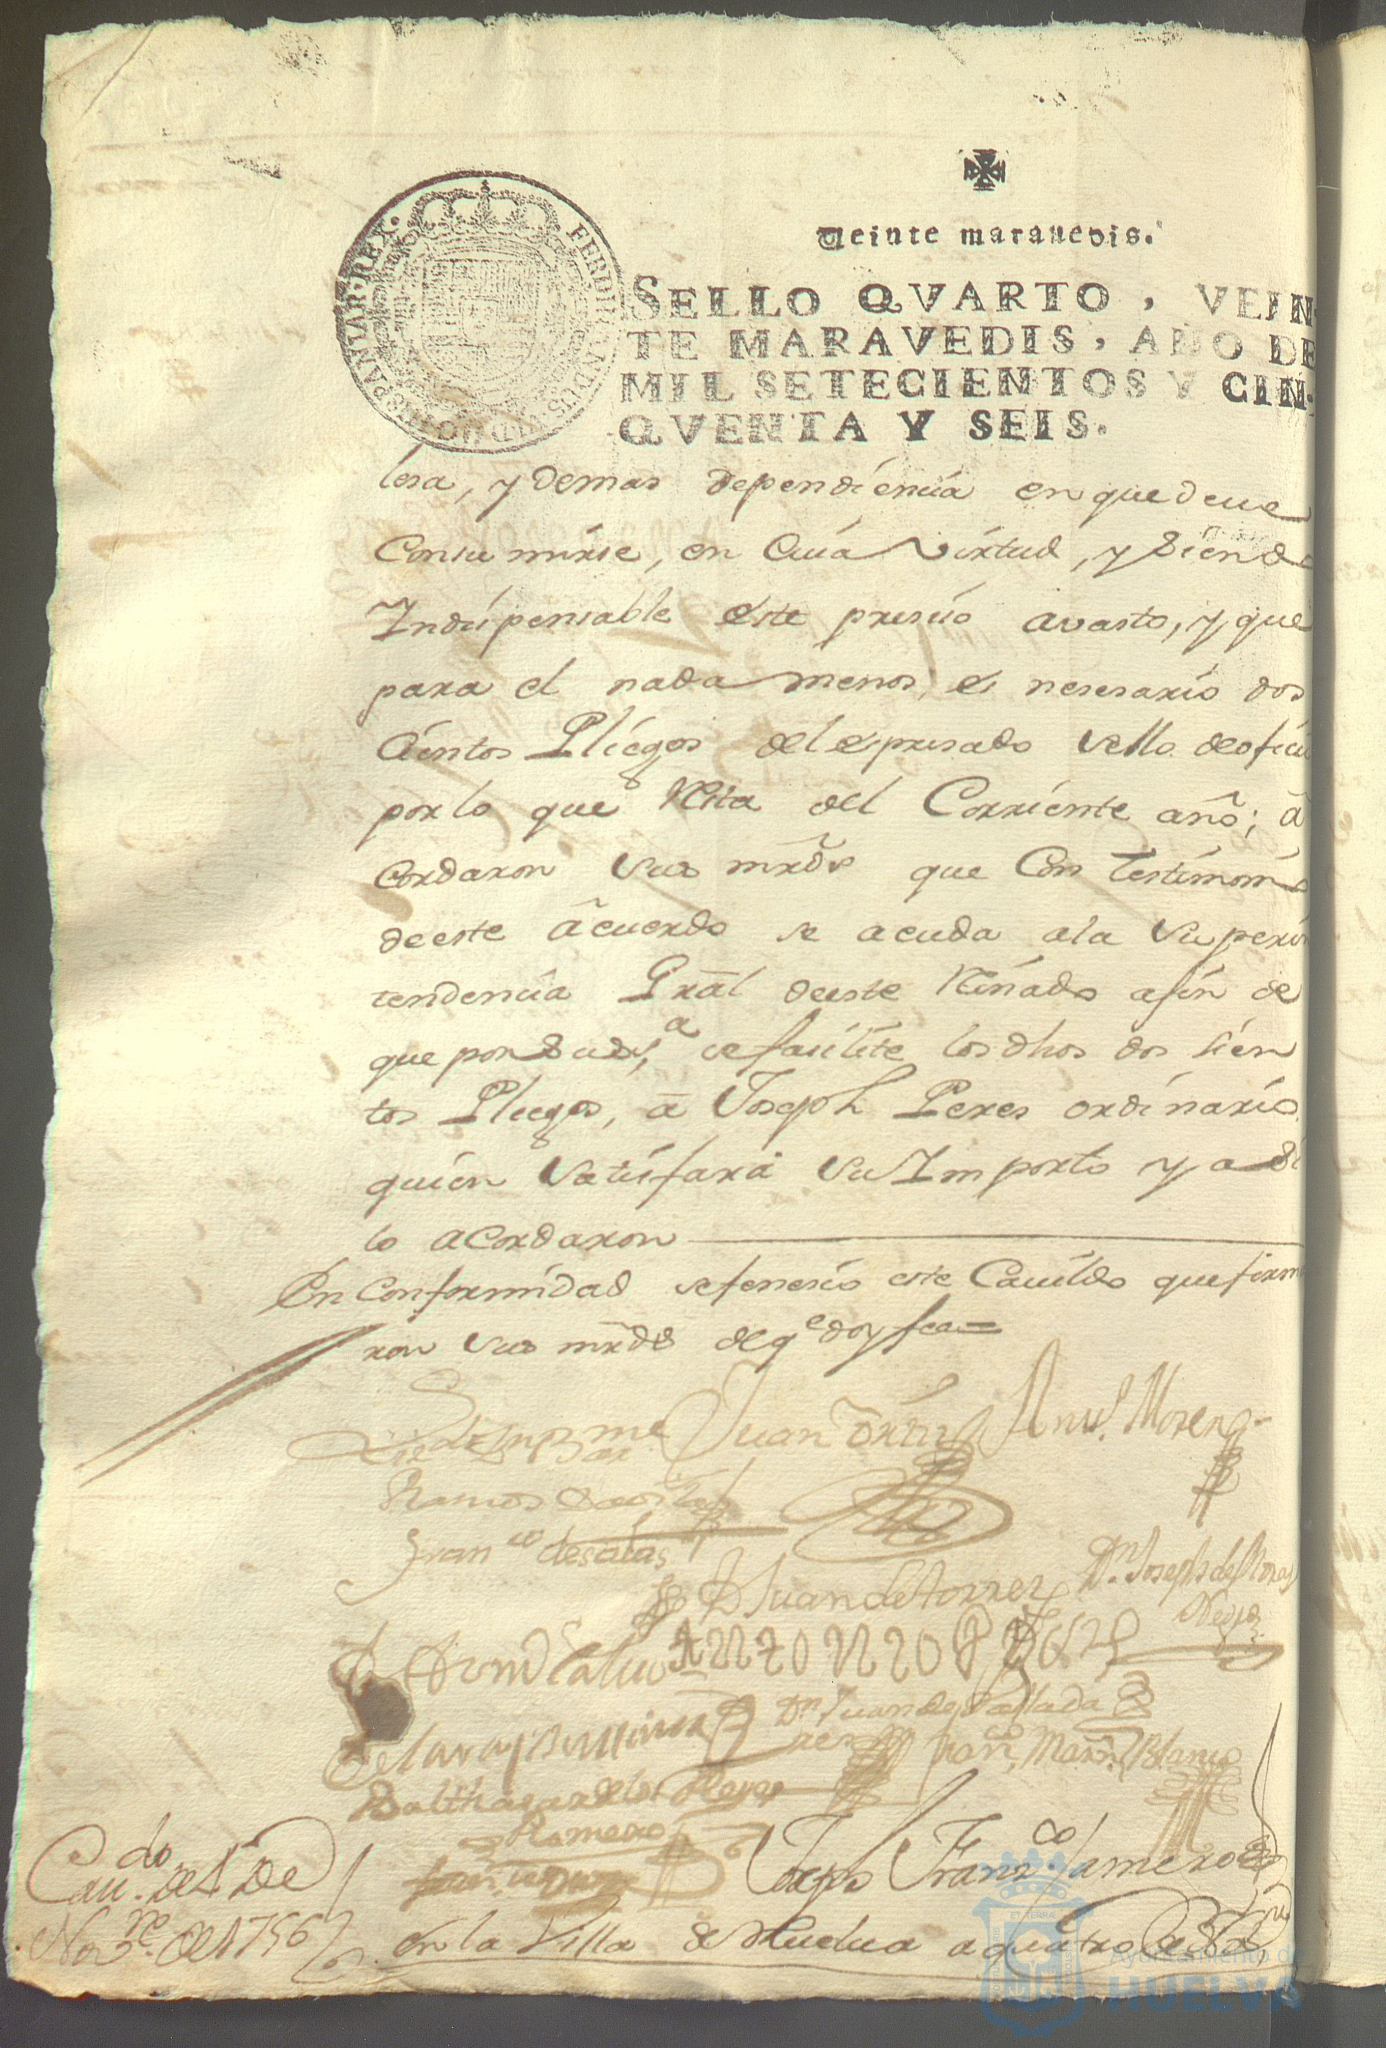 Veinte maravedis.
SELLO QVARTO, VEIN-
TE MARAVEDIS, AÑO DE
MIL SETECIENTOS Y CIN-
QVENTA Y SEIS.
FERDINANDUS HISPANIAR. REX.
lesa, y demas dependiencia en que deve
Consumirse, en Cuia virtud, y siendo
Indispensable este presiso avasto, y que
para el nada menos, es nesesario dos
Cientos Pliegos del espresado sello de ofici
por lo que Resta del Corriente año; a
cordaron sus mrds que Con testimoni
de este acuerdo se acuda a la superin
tendencia Gral de este Reinado a fin de
que por su Sª se fasilite los dhos dos sien
tos Pliegos, a Joseph Peres ordinario
quien satisfara su Importo y asi
lo acordaron
En Conformidad se fenesio este Cavildo que firma
ron sus mrds de qe doy fee =
Juan Ortiz
Moreno
Ramos
Franco de salas
D Juan de torres
Dn Joseph de
Dn Juan de
Franco Martin Blanco
Balthasar de los Reyes
Romero
Joseph Franco Jamero
Cavdo de 4 De
Novre de 1756
en la Villa de Huelva a quatro de
Ayuntamiento de
HUELVA